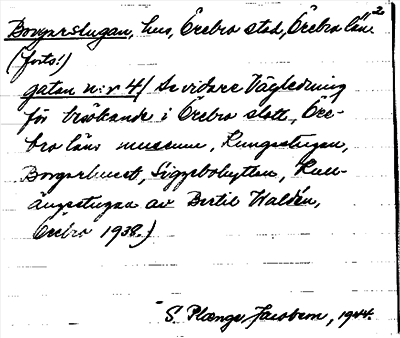 Borgarstugan, hus, Örebro stad, Örebro län. 2
(forts!)
gatan n:r 4/ Se vidare Vägledning
för besökande i Örebro slott, Öre-
bro läns museum, Kungsstugan,
Borgarhuset, Siggebohyttan,
ängsstugan av Bertil Waldén,
Örebro 1938.)
S. Plænge Jacobson, 1944.